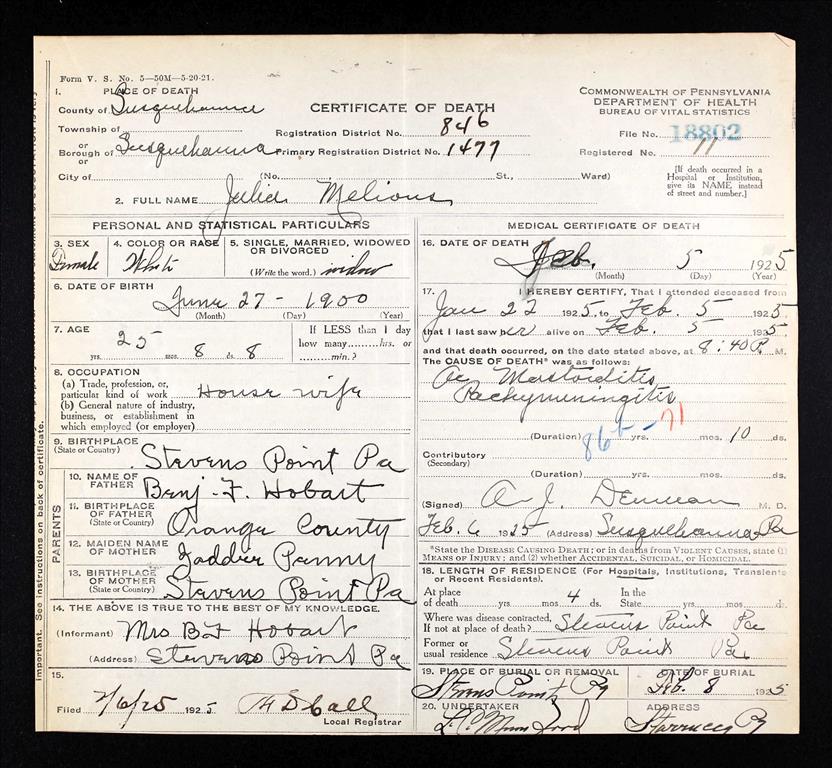 Form V. S. No. 5—50M—5-20-21.
1. PLACE OF DEATH
County of Susquehanna
Township of
or
Borough of Susquehanna
or
City of (No. St., Ward)
CERTIFICATE OF DEATH
Registration District No. 846
Primary Registration District No. 1477
COMMONWEALTH OF PENNSYLVANIA
DEPARTMENT OF HEALTH
BUREAU OF VITAL STATISTICS
File No. 18802
Registered No. 11
[If death occurred in a
Hospital or Institution,
give its NAME instead
of street and number.]
2. FULL NAME Julia Melious
PERSONAL AND STATISTICAL PARTICULARS
3. SEX
Female
4. COLOR OR RACE
White
5. SINGLE, MARRIED, WIDOWED
OR DIVORCED
(Write the word.) widow
6. DATE OF BIRTH
June 27 - 1900
(Month) (Day) (Year)
7. AGE
25 yrs. 8 mos. 8 ds.
If LESS than 1 day
how many hrs. or
min.?
8. OCCUPATION
(a) Trade, profession, or,
particular kind of work House wife
(b) General nature of industry,
business, or establishment in
which employed (or employer)
9. BIRTHPLACE
(State or Country)
Stevens Point Pa
PARENTS
10. NAME OF
FATHER Benj. F. Hobart
11. BIRTHPLACE
OF FATHER
(State or Country) Orange County
12. MAIDEN NAME
OF MOTHER Penny
13. BIRTHPLACE
OF MOTHER
(State or Country) Stevens Point Pa
14. THE ABOVE IS TRUE TO THE BEST OF MY KNOWLEDGE.
(Informant) Mrs B F Hobart
(Address) Stevens Point Pa
15.
Filed 2/6/25 1925
Local Registrar
MEDICAL CERTIFICATE OF DEATH
16. DATE OF DEATH
Feb. 5 1925
(Month) (Day) (Year)
17. I HEREBY CERTIFY, That I attended deceased from
Jan 22 1925, to Feb. 5 1925
that I last saw her alive on Feb. 5 1925.
and that death occurred, on the date stated above, at 8:40 P. M.
The CAUSE OF DEATH* was as follows:
Ac Mastoiditis
Pachymeningitis
86 - 71
(Duration) yrs. mos. 10 ds.
Contributory
(Secondary)
(Duration) yrs. mos. ds.
(Signed) A. J. Denman M. D.
Feb. 6 1925 (Address) Susquehanna, Pa
*State the DISEASE CAUSING DEATH; or in deaths from VIOLENT CAUSES, state (1)
MEANS OF INJURY; and (2) whether ACCIDENTAL, SUICIDAL, or HOMICIDAL.
18. LENGTH OF RESIDENCE (For Hospitals, Institutions, Transients
or Recent Residents).
At place
of death yrs. mos. 4 ds. In the
State yrs. mos. ds.
Where was disease contracted,
If not at place of death? Stevens Point Pa
Former or
usual residence Stevens Point Pa
19. PLACE OF BURIAL OR REMOVAL
Stevens Point Pa
DATE OF BURIAL
Feb. 8 1925
20. UNDERTAKER
ADDRESS
Starrucca Pa
important. See instructions on back of certificate.